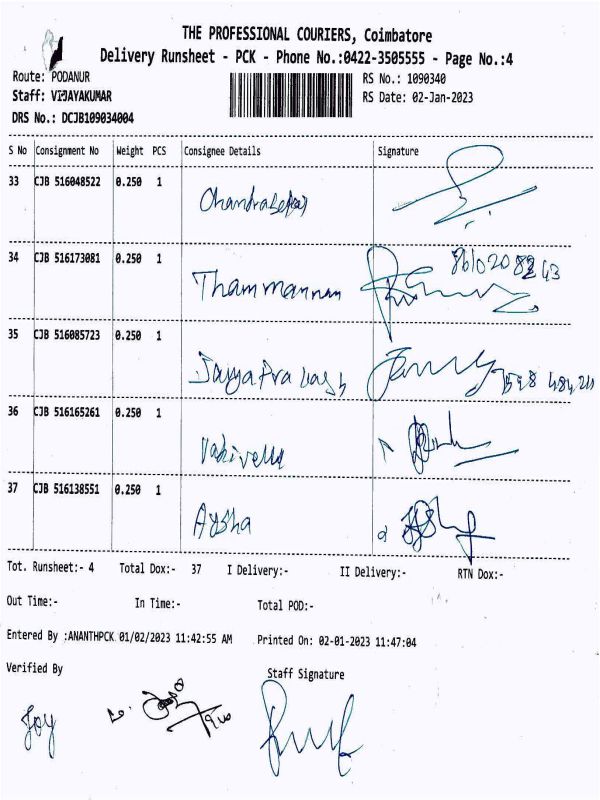 THE PROFESSIONAL COURIERS, Coimbatore
Delivery Runsheet - PCK - Phone No.:0422-3505555 - Page No.:4
Route: PODANUR RS No.: 1090340
Staff: VIJAYAKUMAR RS Date: 02-Jan-2023
DRS No.: DCJB109034004
S No Consignment No Weight PCS Consignee Details Signature
33 CJB 516048522 0.250 1
34 CJB 516173081 0.250 1
Thammannan
35 CJB 516085723 0.250 1
36 CJB 516165261 0.250 1
37 CJB 516138551 0.250 1
Aysha
Tot. Runsheet:- 4 Total Dox:- 37 I Delivery:- II Delivery:- RTN Dox:-
Out Time:- In Time:- Total POD:-
Entered By :ANANTHPCK 01/02/2023 11:42:55 AM Printed On: 02-01-2023 11:47:04
Verified By Staff Signature
Joy